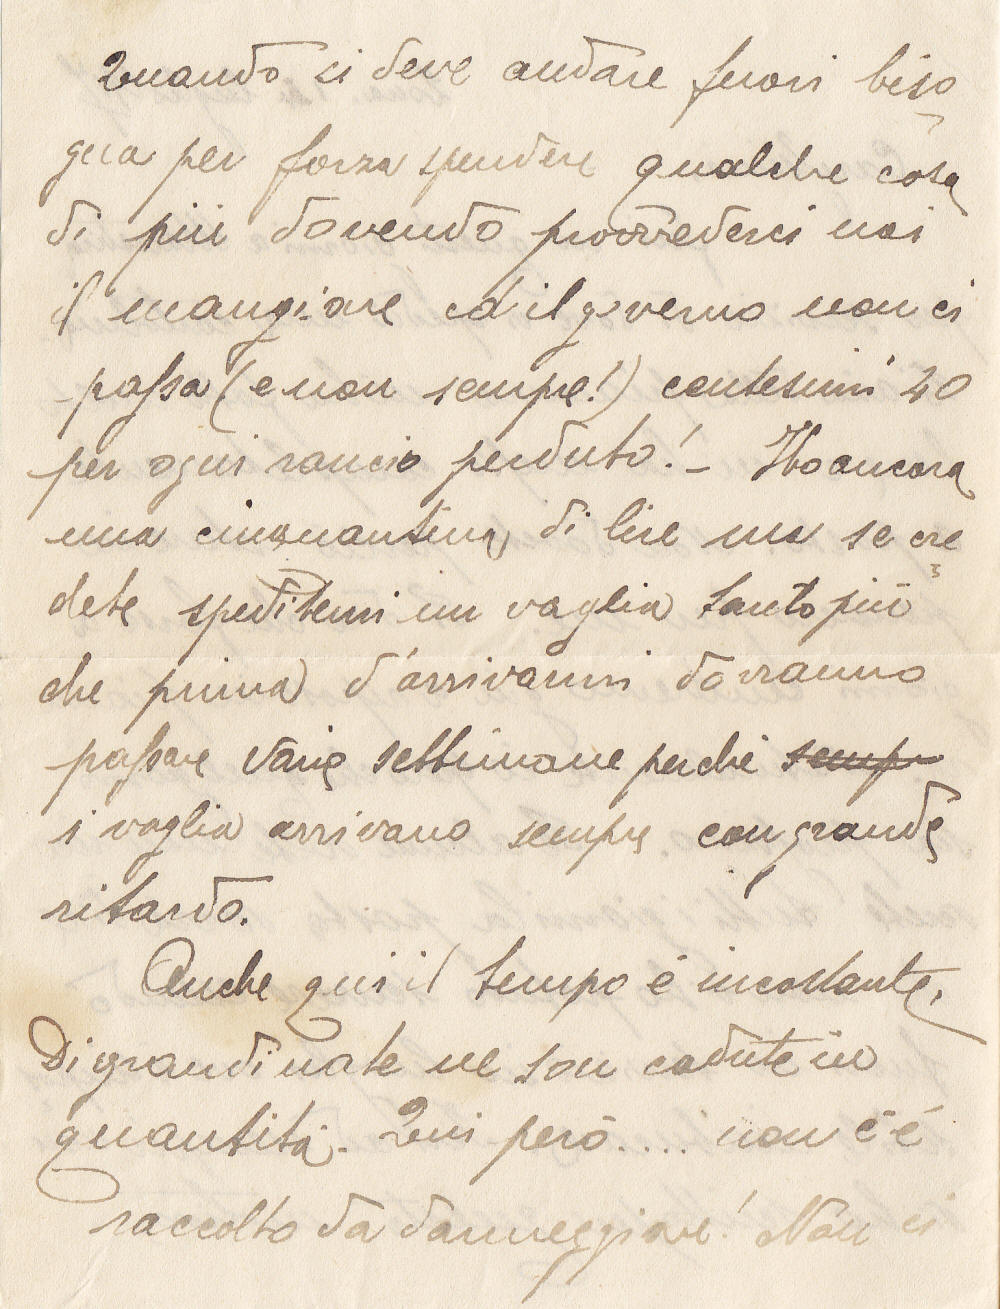 Quando si deve andare fuori biso
gna per forza spendere qualche cosa
di più dovendo provvederci noi
il mangiare ed il governo non ci
passa (e non sempre!) centesimi 40
per ogni rancio perduto! – Ho ancora
una cinquantina di lire ma se cre
dete speditemi un vaglia tanto più
che prima d'arrivarmi dovranno
passare varie settimane perchè sempr
i vaglia arrivano sempre con grande
ritardo.
Anche qui il tempo è incostante,
Di grandinate ne son cadute in
quantità. Qui però..... non c'è
raccolto da danneggiare! Non ci